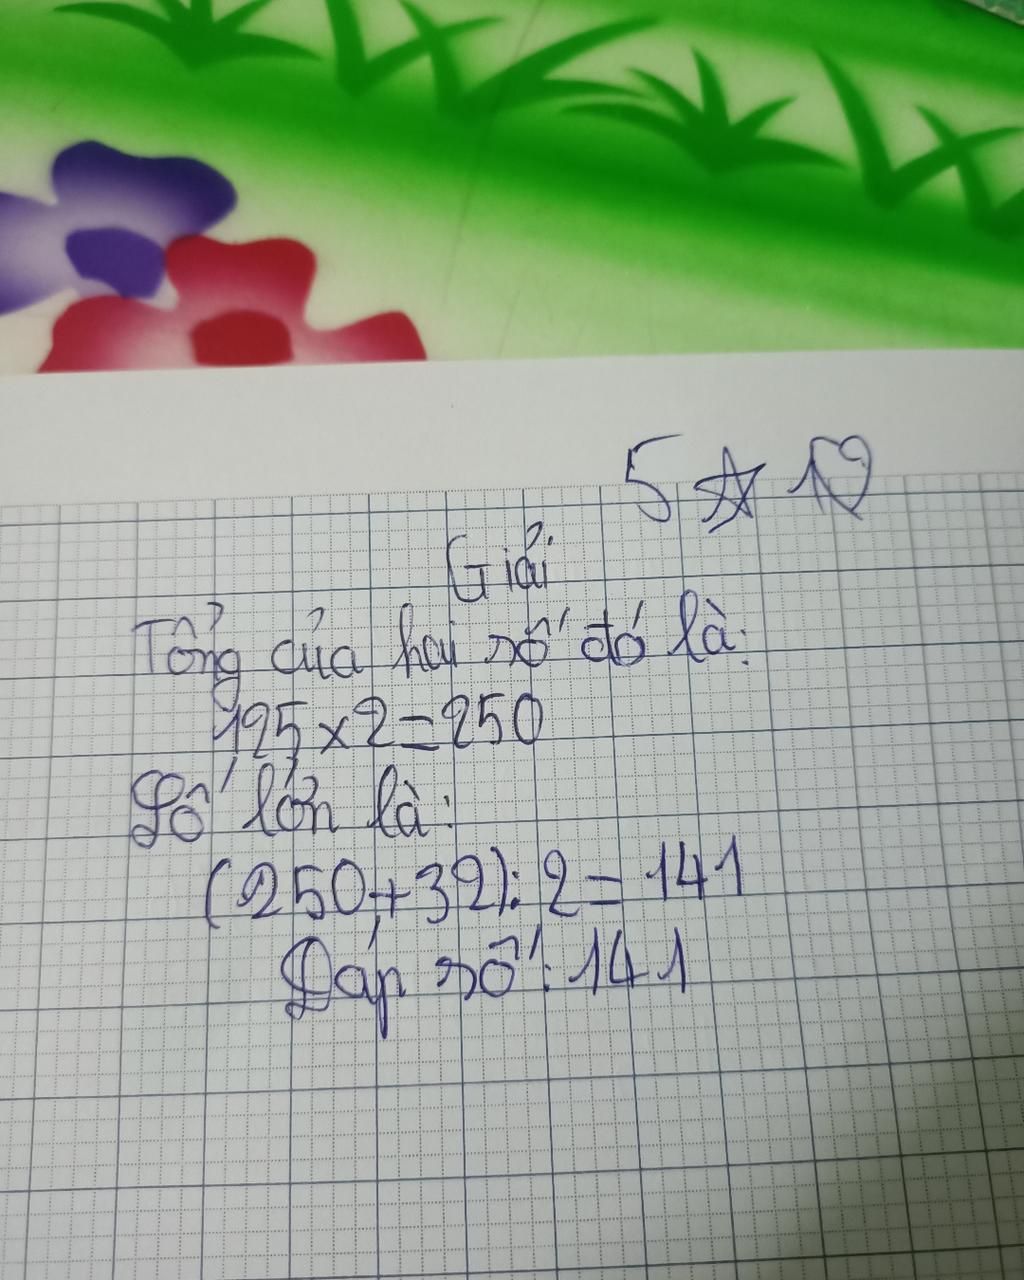 5 ☆ 10
Giải
Tổng của hai số đó là:
125 × 2 = 250
Số lớn là:
(250 + 32) : 2 = 141
Đáp số : 141